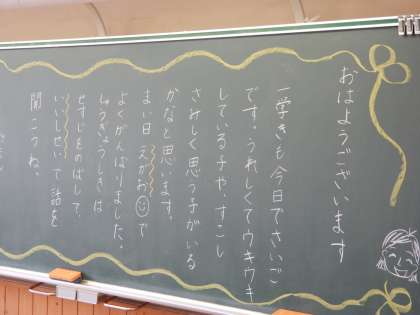 おはようございます
一学きも今日でさいご
です。うれしくてウキウキ
している子や、すこし
さみしく思う子がいる
かなと思います。
まい日えがおで
よくがんばりました。
しゅうぎょうしきは
せすじをのばして、
いいしせいで話を
聞こうね。